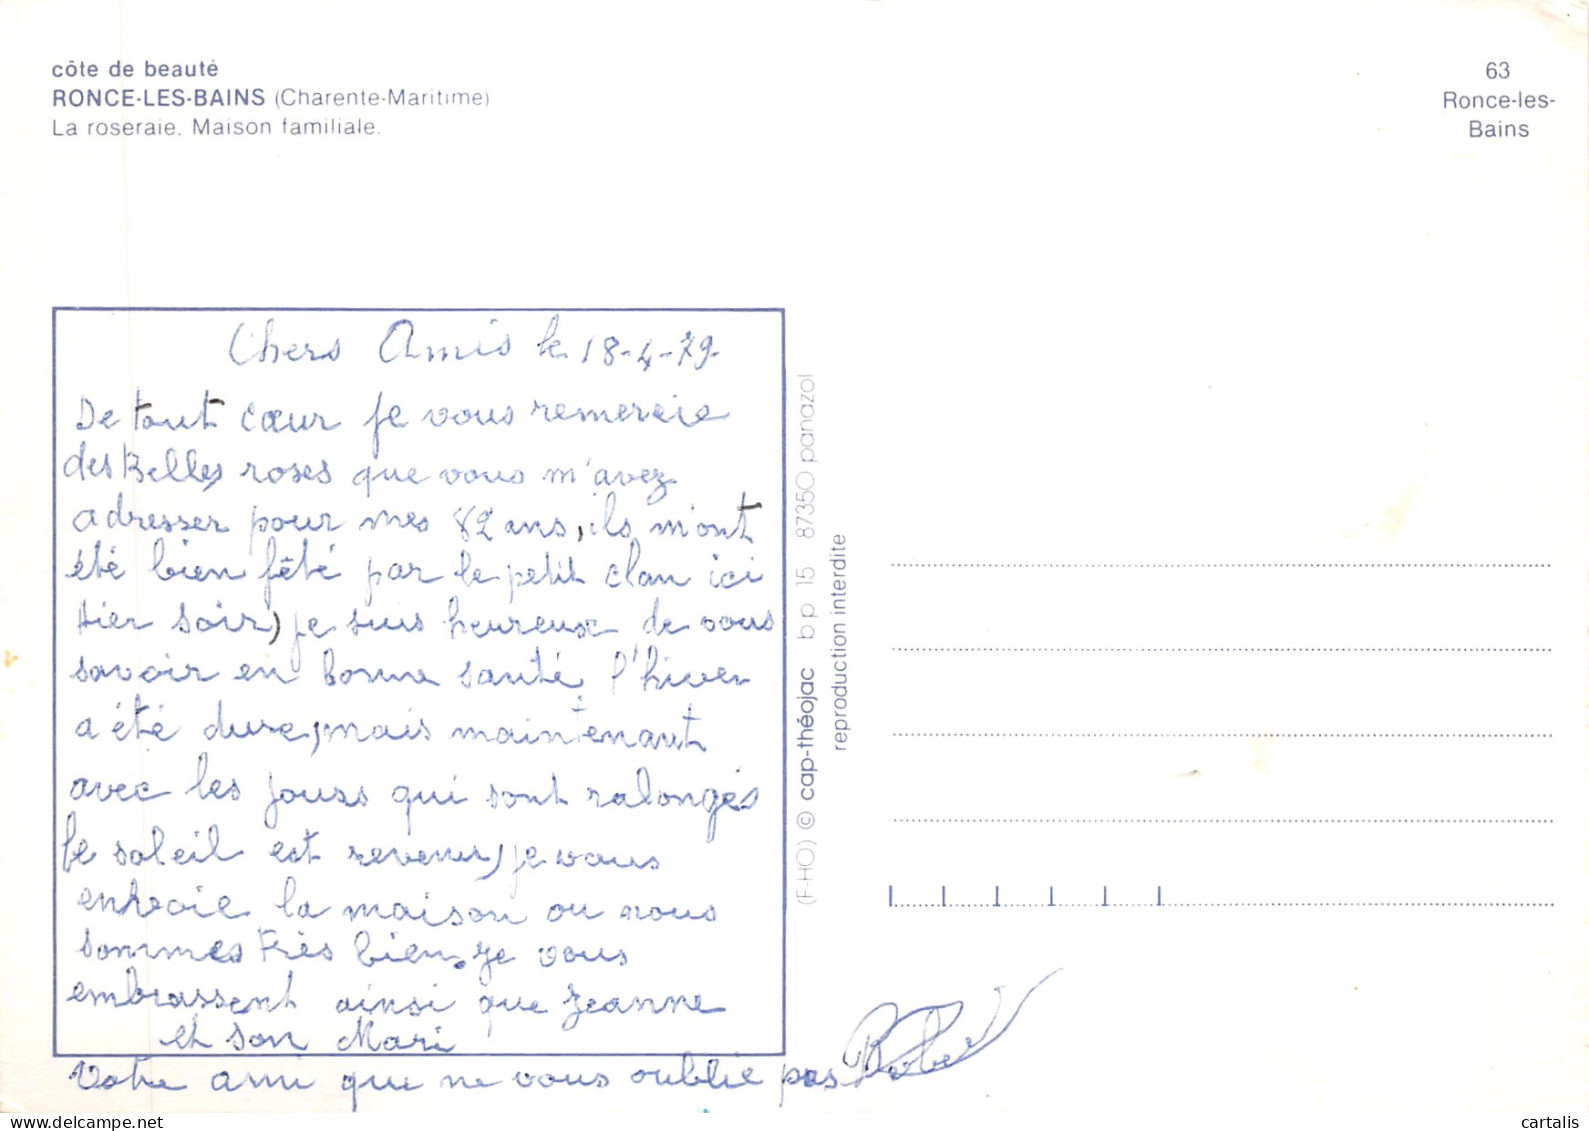 côte de beauté
RONCE-LES-BAINS (Charente-Maritime)
La roseraie. Maison familiale.
63
Ronce-les-
Bains
Chers Amis le 18-4-79
De tout cœur je vous remercie
des Belles roses que vous m'avez
adresser pour mes 82 ans, ils m'ont
été bien fêté par le petit clan ici
Hier soir) je suis heureux de vous
savoir en bonne santé, l'hiver
a été dure, mais maintenant
avec les jours qui sont ralongés
le soleil est revenu, je vous
envoie la maison ou nous
sommes très bien. Je vous
embrassent ainsi que Jeanne
et son Mari
Votre ami que ne vous oublie pas
(F-HO) © cap-théojac bp 15 87350 panazol
reproduction interdite
cartalis
www.delcampe.net